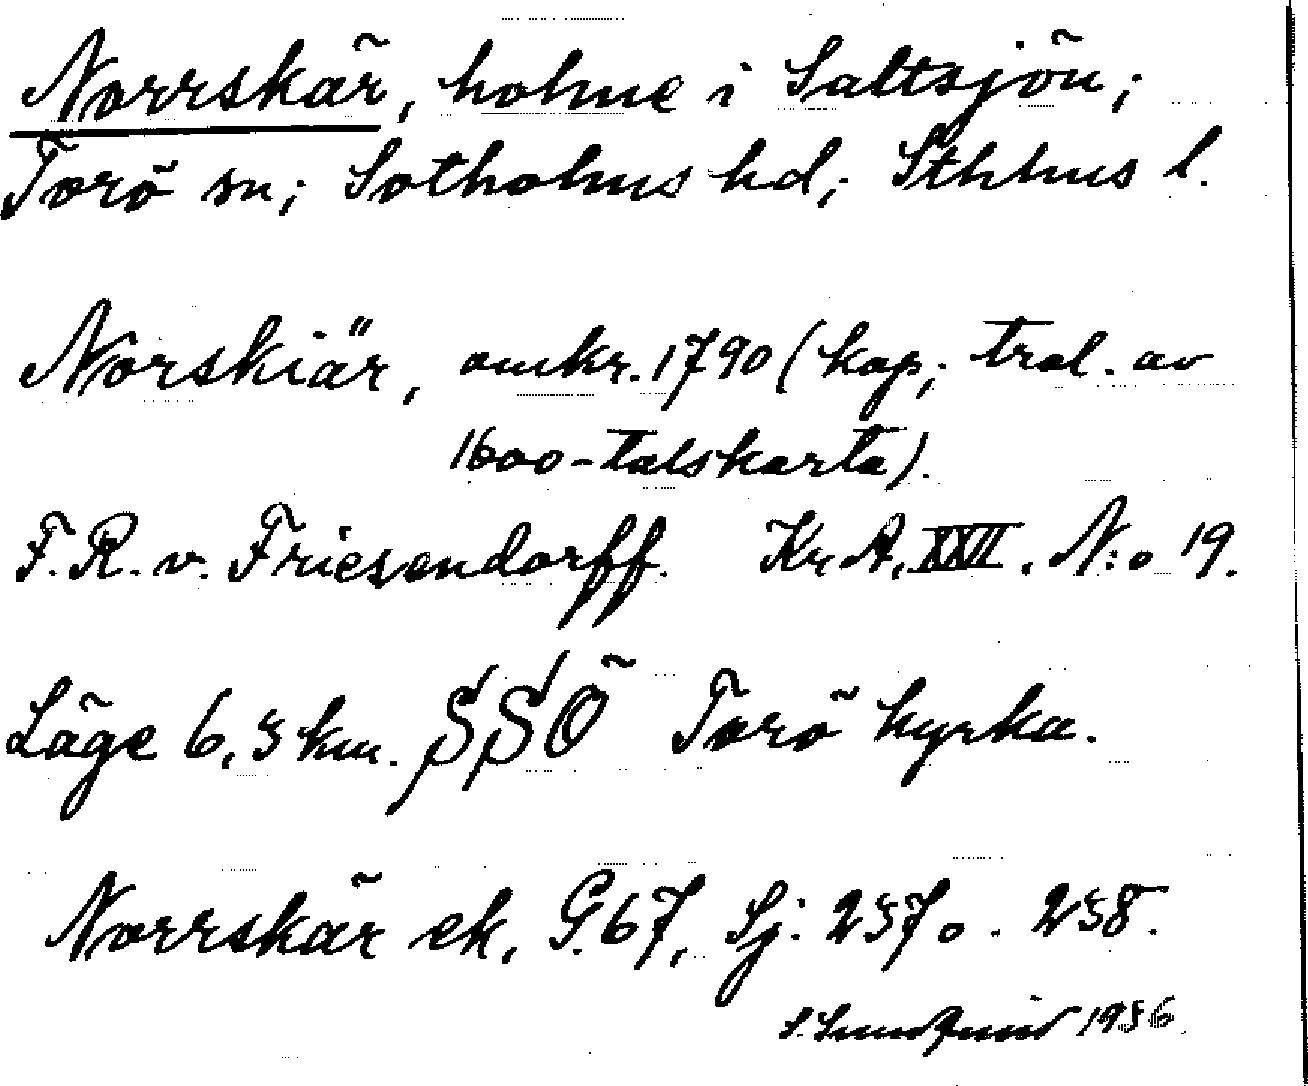 Norrskär, holme i Saltsjön;
Torö sn; Sotholms hd; Sthlms l.
Norskiär, omkr. 1790 (kop; trol. av
1600-talskarta).
F. R. v. Friesendorff. Kr A, XXVI. N:o 19.
Läge 6,5 km. SSÖ Torö kyrka.
Norrskär ek, G. 67, Sj: 257 o. 258.
1956